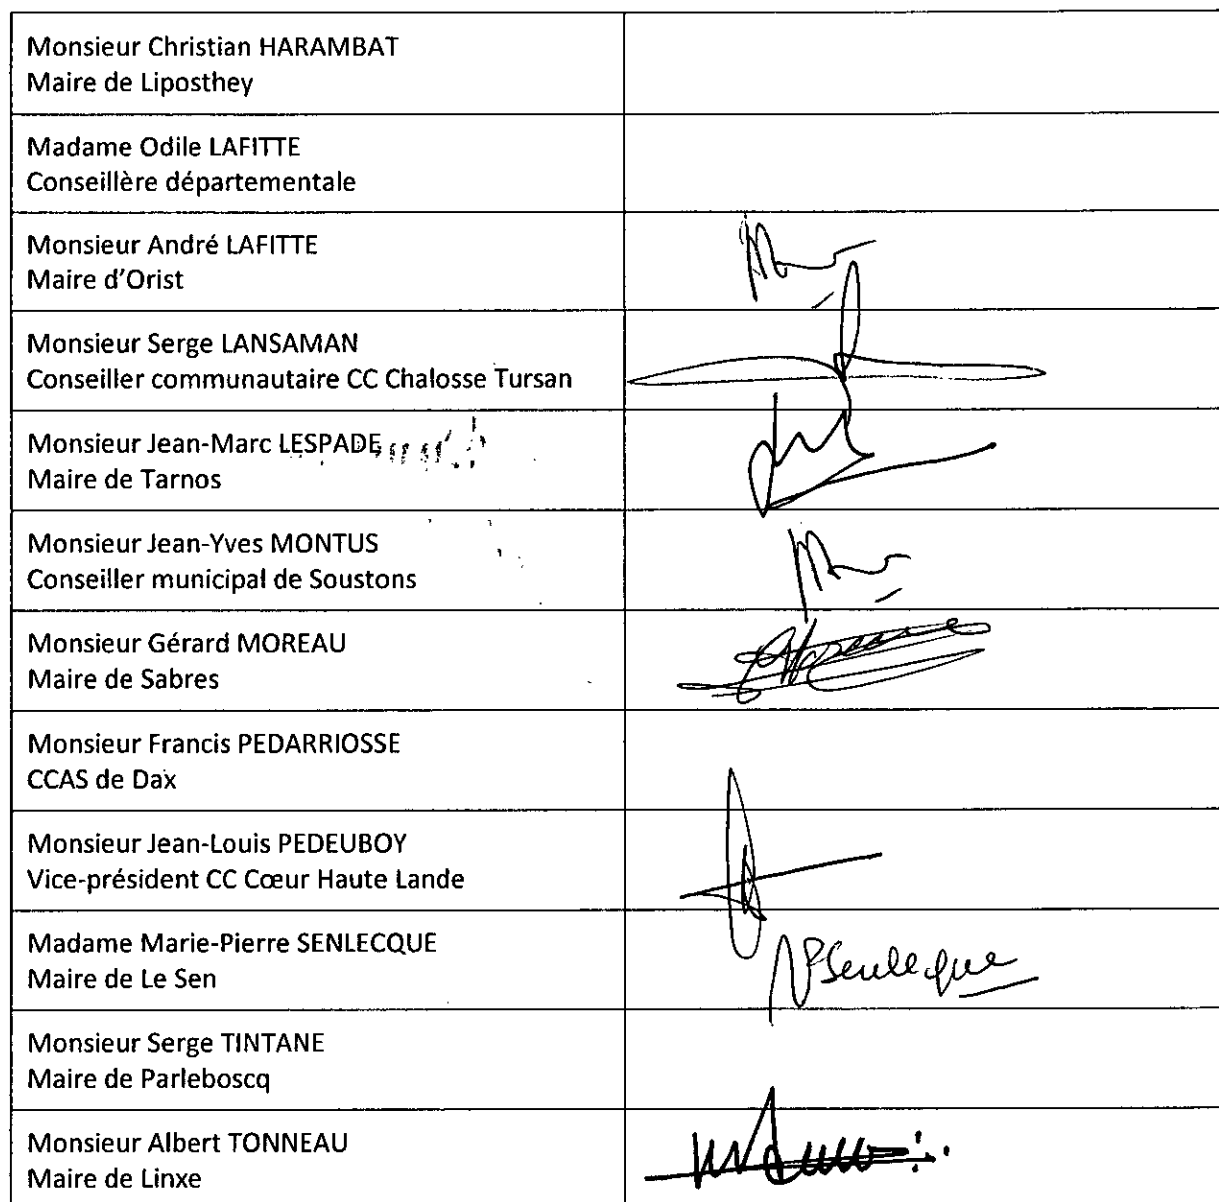 Monsieur Christian HARAMBAT
Maire de Liposthey
Madame Odile LAFITTE
Conseillère départementale
Monsieur André LAFITTE
Maire d'Orist
Monsieur Serge LANSAMAN
Conseiller communautaire CC Chalosse Tursan
Monsieur Jean-Marc LESPADE
Maire de Tarnos
Monsieur Jean-Yves MONTUS
Conseiller municipal de Soustons
Monsieur Gérard MOREAU
Maire de Sabres
Monsieur Francis PEDARRIOSSE
CCAS de Dax
Monsieur Jean-Louis PEDEUBOY
Vice-président CC Cœur Haute Lande
Madame Marie-Pierre SENLECQUE
Maire de Le Sen
Senlecque
Monsieur Serge TINTANE
Maire de Parleboscq
Monsieur Albert TONNEAU
Maire de Linxe